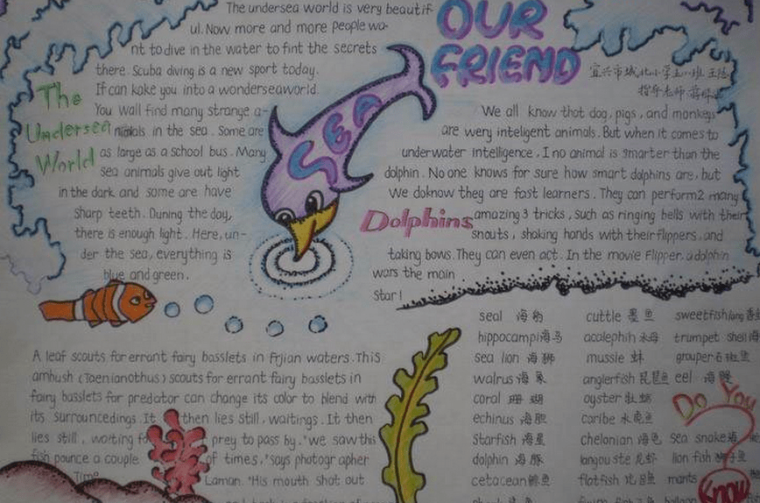 OUR FRIEND
The Undersea World
The undersea world is very beautif-
ul. Now more and more people wa-
nt to dive in the water to fint the secrets
there. Scuba diving is a new sport today.
If can kake you into a wonderseaworld.
You wail find many strange a-
nimals in the sea. Some are
as large as a school bus. Many
sea animals give out light
in the dark and some are have
sharp teeth. During the day,
there is enough light. Here, un-
der the sea, everything is
blue and green.
SEA
Dolphins
We all know that dog, pigs, and monkeys
are wery inteligent animals. But when it comes to
underwater intelligence, I no animal is smarter than the
dolphin. No one knows for sure how smart dolphins are, but
We doknow they are fast learners. They can perform2 many
amazing 3 tricks, such as ringing bells with their
snouts, shaking hands with their flippers, and
taking bows. They can even act. In the movie Flipper, a dolphin
wars the main
star!
A leaf scouts for errant fairy basslets in Frjian waters. This
ambush (Taenianothus) scouts for errant fairy basslets in
fairy basslets for predator can change its color to blend with
its surroundings. It then lies still, waitings. It then
lies still, waiting fo prey to pass by. "we saw this
fish pounce a couple of times," says photographer
Timo Laman. "His mouth shot out
seal 海豹 cuttle 墨鱼 sweetfish
hippocampi 海马 acalephih 水母 trumpet shell
sea lion 海狮 mussle 蚌 grouper 石斑鱼
walrus 海象 anglerfish 琵琶鱼 eel 海鳗
coral 珊瑚 oyster 牡蛎
echinus 海胆 caribe 水虎鱼
starfish 海星 chelonian 海龟 sea snake
dolphin 海豚 langouste 龙虾 lion fish 狮子鱼
cetacean 鲸鱼 flatfish 比目鱼 manta
Do You Know